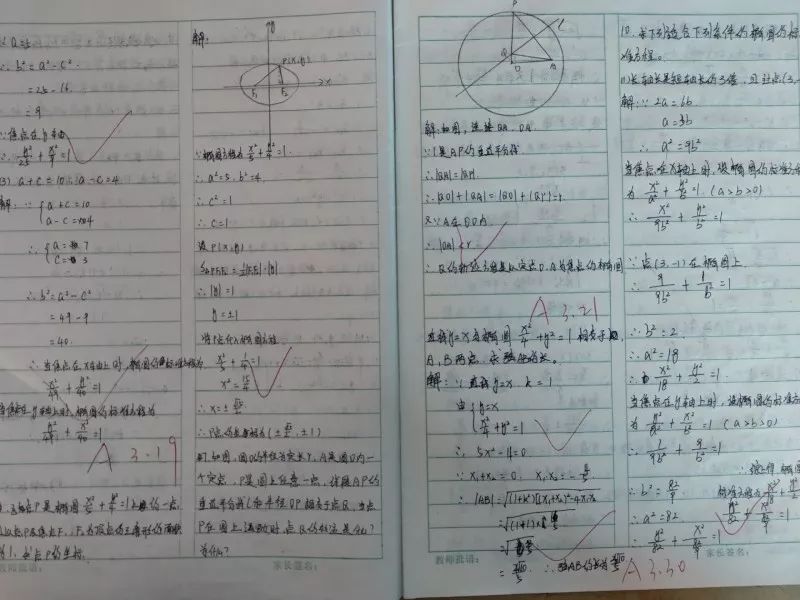 ∴ b²=a²-c²
=25-16
=9
∵焦点在y轴
∴ y²/25 + x²/9 =1
(3) a+c=10 a-c=4
解:∵ {a+c=10
a-c=4
∴ {a=7
c=3
∴ b²=a²-c²
=49-9
=40
∴ 当焦点在x轴上时,椭圆的标准方程为
x²/49 + y²/40 =1
当焦点在y轴上时,椭圆的标准方程为
y²/49 + x²/40 =1
A 3.19
点P是椭圆 x²/5 + y²/4 =1上的一点,
以点P及焦点F₁,F₂为顶点的三角形的面积
求点P的坐标.
教师批语:
解:
y
P(x,y)
F₁ F₂ x
∵椭圆方程为 x²/5 + y²/4 =1
∴ a²=5, b²=4
∴ c²=1
∴ c=1
设P(x,y)
∴ |y|=1
y=±1
将P点代入椭圆方程
x²/5 + 1/4 =1
x²=15/4
∴ x=± √15/2
∴ P点的坐标为(± √15/2, ±1)
如图,圆O的半径为定长r, A是圆O内一
个定点, P是圆上任意一点,线段AP的
垂直平分线l和半径OP相交于点Q,当点
P在圆上运动时,点Q的轨迹是什么?
为什么?
家长签名:
P
l
Q
O A
解:如图,连接QA、OA.
∵ l是AP的垂直平分线
∴ |QA|=|QP|
∴ |QO|+|QA|=|QO|+|QP|=r
又∵ A在圆O内
∴ |OA|<r
∴ Q的轨迹是以定点O、A为焦点的椭圆
A 3.21
直线y=x与椭圆 x²/4 + y²=1 相交于
A,B两点,求弦AB的长。
解:∵直线y=x, k=1
由 {y=x
x²/4 + y²=1
∴ 5x²-4=0
∴ x₁+x₂=0, x₁·x₂=- 4/5
∴ |AB|=√(1+k²)[(x₁+x₂)²-4x₁x₂]
∴弦AB的长为
教师批语:
10. 求下列适合下列条件的椭圆的标
准方程。
(1)长轴长是短轴长的3倍,且过点(3,
解:∵ 2a=6b
a=3b
∴ a²=9b²
当焦点在x轴上时,设椭圆的标准方
为 x²/a² + y²/b² =1 (a>b>0)
∴ x²/9b² + y²/b² =1
∵点(3,-1)在椭圆上
∴ 9/9b² + 1/b² =1
∴ b²=2
∴ a²=18
∴ x²/18 + y²/2 =1
当焦点在y轴上时,设椭圆的标准方
为 y²/a² + x²/b² =1 (a>b>0)
∴ 1/9b² + 9/b² =1
∴ b²= 82/9
∴ a²=82
∴ y²/82 + x²/ =1
∴综上得椭圆
标准方程为 x²/18 + y²/2 =1
A 3.30
家长签名: